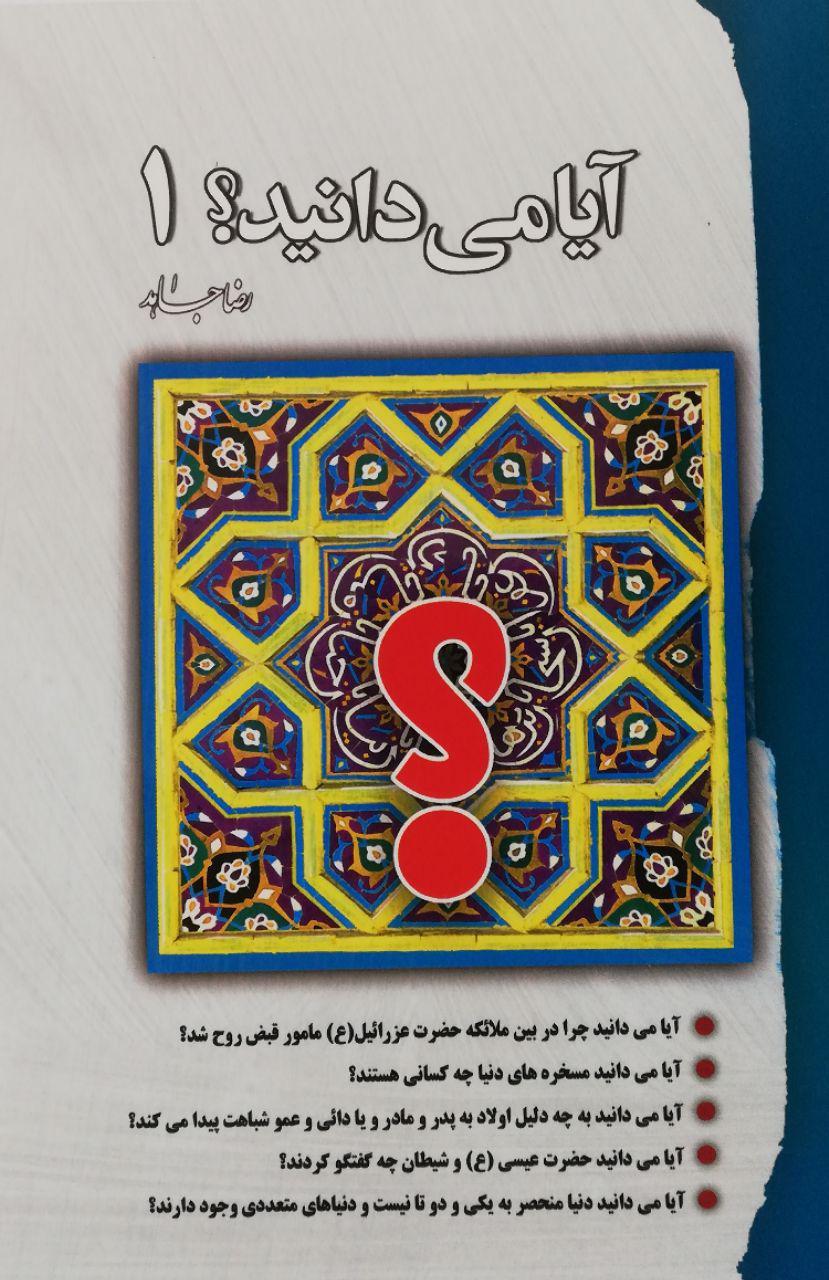 آیا می دانید؟ ۱
رضا جاهد
؟
آیا می دانید چرا در بین ملائکه حضرت عزرائیل(ع) مامور قبض روح شد؟
آیا می دانید مسخره های دنیا چه کسانی هستند؟
آیا می دانید به چه دلیل اولاد به پدر و مادر و یا دائی و عمو شباهت پیدا می کند؟
آیا می دانید حضرت عیسی (ع) و شیطان چه گفتگو کردند؟
آیا می دانید دنیا منحصر به یکی و دو تا نیست و دنیاهای متعددی وجود دارند؟